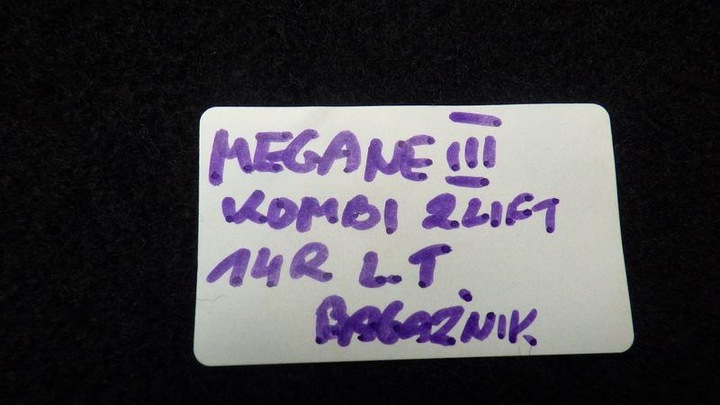 MEGANE III
KOMBI 2LIFT
14R LT
BAGAŻNIK